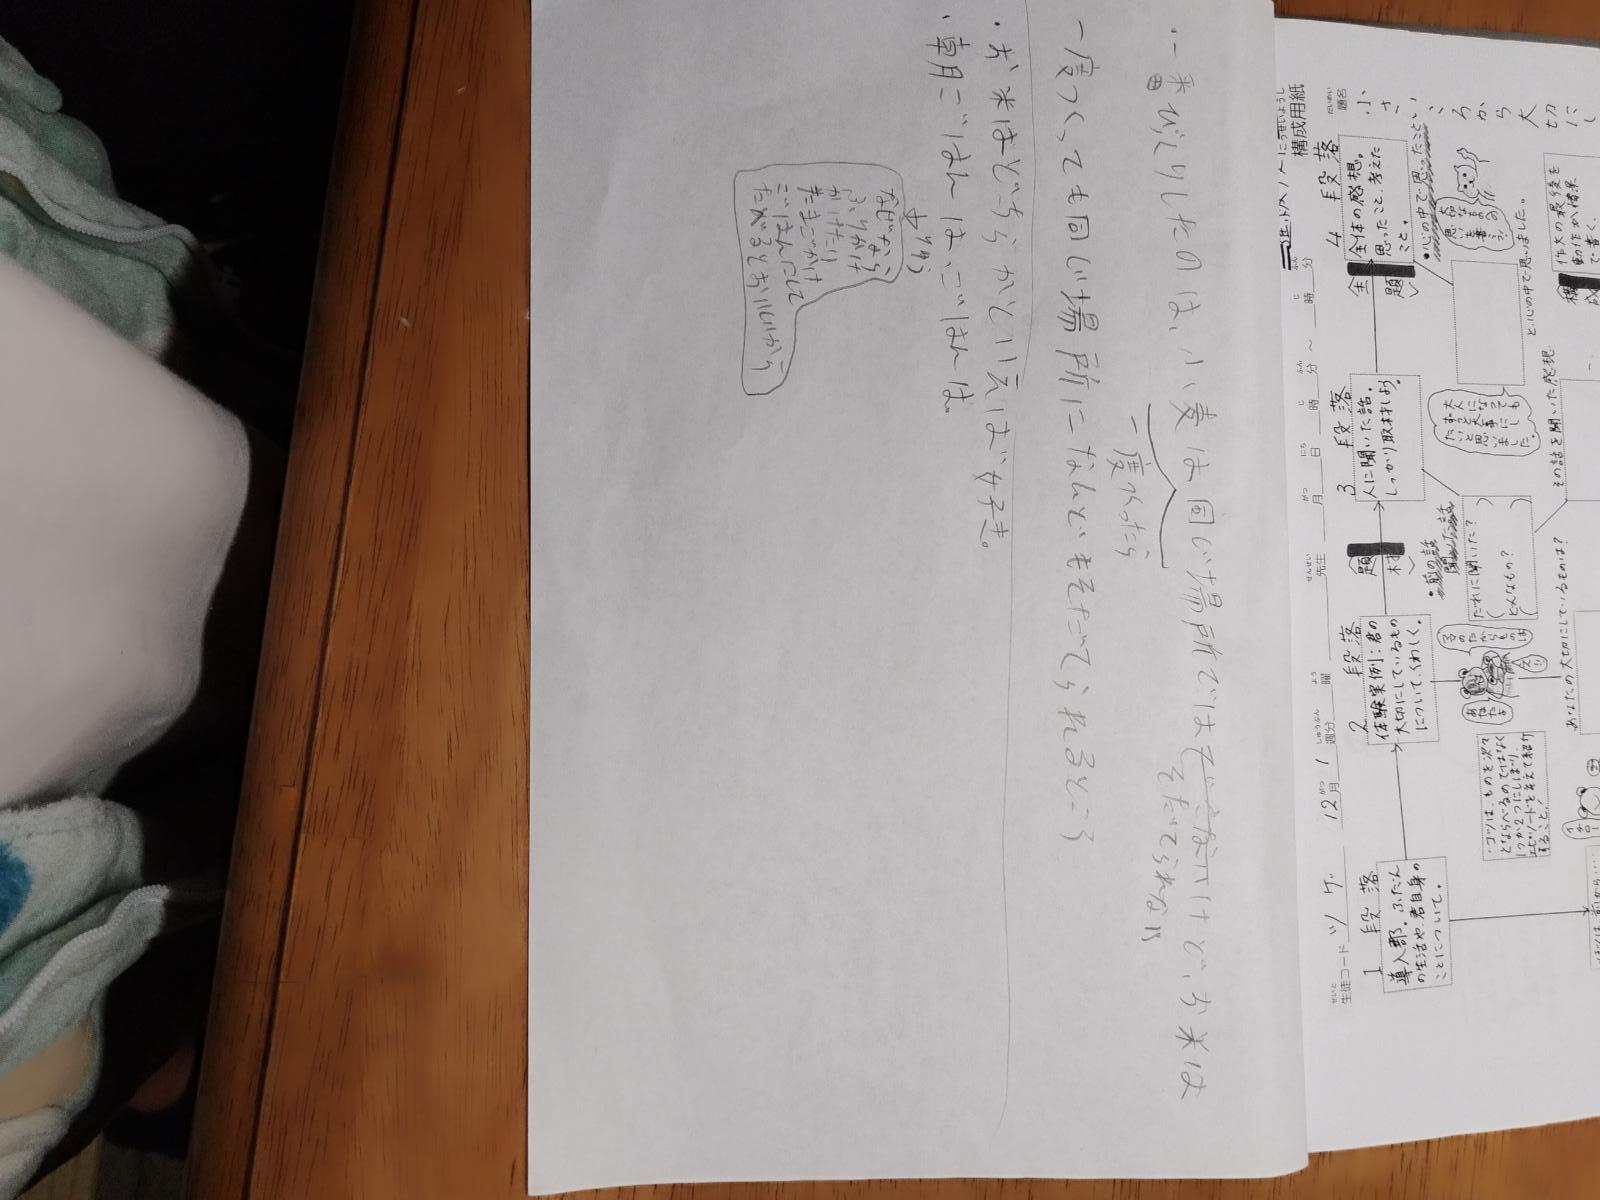 ・一番びっくりしたのは、小麦は同じ場所では
一度うえたら
そだてられない
けど、お米は
一度つくっても同じ場所になんどもそだてられるところ
・お米はどちらかといえば好き。
・朝ごはんはごはんは。
なぜなら
ふりかけ
かけたり
たまごかけ
ごはんにして
たべるとおいしいから
構成用紙
題名
小さいころから大切にし
生徒コード ツ ケ 12月 1 週分 曜 先生 月 日 時 分 〜 時 分
1段落
導入部。ふだん
の生活や、君自身の
ことについて。
2段落
体験実例：君の
大切にしているもの
について、くわしく。
題材
3段落
人に聞いた話。
しっかり取材しよう。
4段落
全体の感想。
思ったこと、考えた
こと。
主題
・コツは、ものを次々
とならべるのではなく
1つか2つにしぼり、
エピソードを交えて紹介
すること！
あなたの大切にしているものは？
・前の話
聞いた話
だれに聞いた？
どんなもの？
その話を聞いた感想
・心の中で思ったこと
と、心の中で思いました。
作文の最後を
動作か情景
で書く。